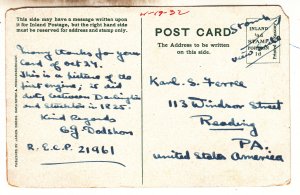 W-19-32
This side may have a message written upon
it for Inland Postage, but the right hand side
must be reserved for address and stamp only.
POST CARD
The Address to be written
on this side.
INLAND
½d
STAMP
FOREIGN
1d
Many thanks for your
card of Oct 24.
This is a picture of the
first engine; it did
duty between Darlington
and Stockton in 1825.
Kind Regards
R.E.C.P. 21961
Karl S. Ferree
113 Windsor Street
Reading
PA.
United States America